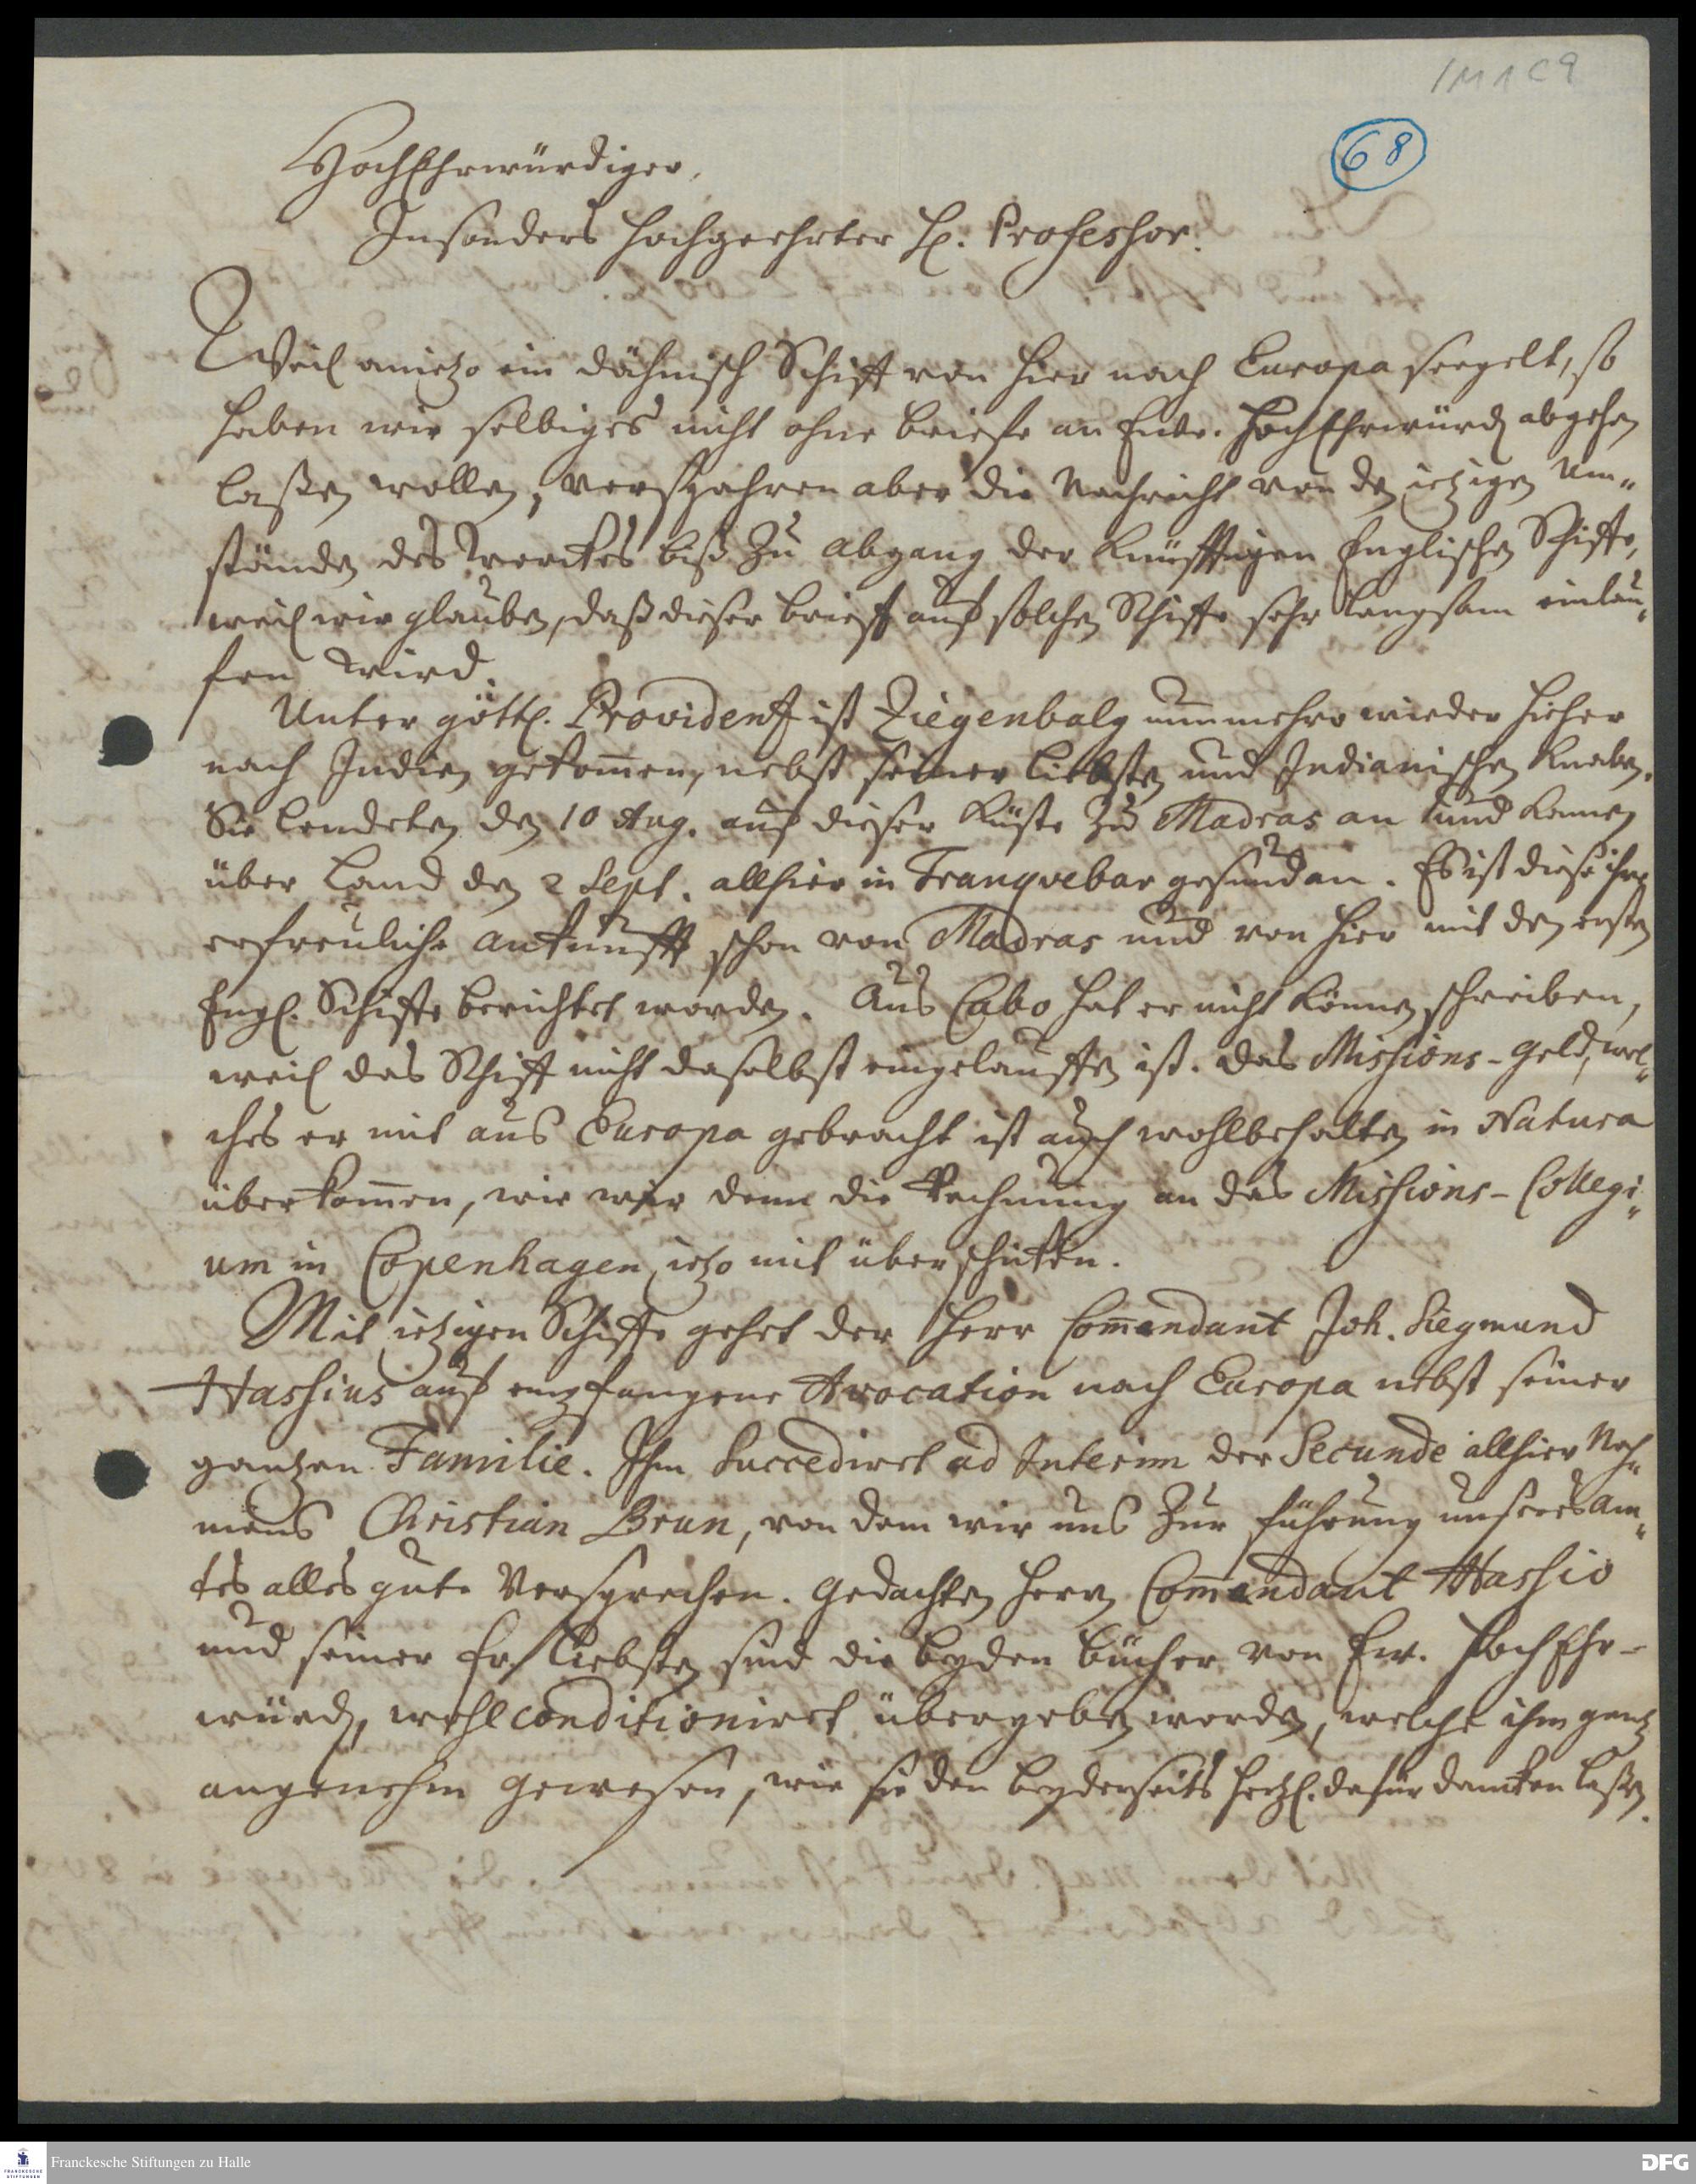 1 M 1 C 9
68
HochEhrwürdiger,
Insonders Hochgeehrter H. Professor.
Weil anietzo ein dähnisch Schiff von hier nach Europa seegelt, so
haben wir selbiges nicht ohne briefe an Eure. HochEhrwürd abgehen
laßen wollen, verspahren aber die Nachricht von den ietzigen Um„
ständen des Werckes biß zu abgang der künfftigen Englischen Schiffe,
weil wir glauben, daß dieser brieff auf solchen Schiffe sehr langsam einlau„
fen wird.
Unter göttl. Providentz ist Ziegenbalg nunmehro wieder hieher
nach Indien gekom̄en, nebst seiner liebsten und Indianischen Knaben.
Sie landeten den 10 Aug. auf dieser Küste zu Madras an und kamen
über Land den 2 Sept. allhier in Tranqvebar gesund an. Es ist diese ihre
erfreuliche ankunfft schon von Madras und von hier mit den ersten
Engl. Schiffe berichtet worden. Aus Cabo hat er nicht können schreiben,
weil das Schiff nicht daselbst eingelauffen ist. Das Missions-Geld, wel„
ches er mit aus Europa gebracht ist auch wohlbehalten in Natura
überkom̄en, wie wir denn die Rechnung an das Missions-Collegi„
um in Copenhagen ietzo mit überschicken.
Mit ietzigen Schiffe gehet der Herr Com̄endant Joh. Siegmund
Hassius auf empfangene Avocation nach Europa nebst seiner
gantzen Familie. Ihm Succediret ad Interim der Secunde allhier Nah„
mens Christian Brun, von dem wir uns zur führung unseres Am„
tes alles gute Versprechen. Gedachten Herrn Com̄endant Hassio
und seiner Fr liebsten sind die beyden bücher von Ew. HochEhr-
würd, wohl conditioniret übergeben worden, welche ihm gantz
angenehm gewesen, wie sie den beyderseits hertzl. dafür dancken laßen.
Franckesche Stiftungen zu Halle
FRANCKESCHE STIFTUNGEN
DFG